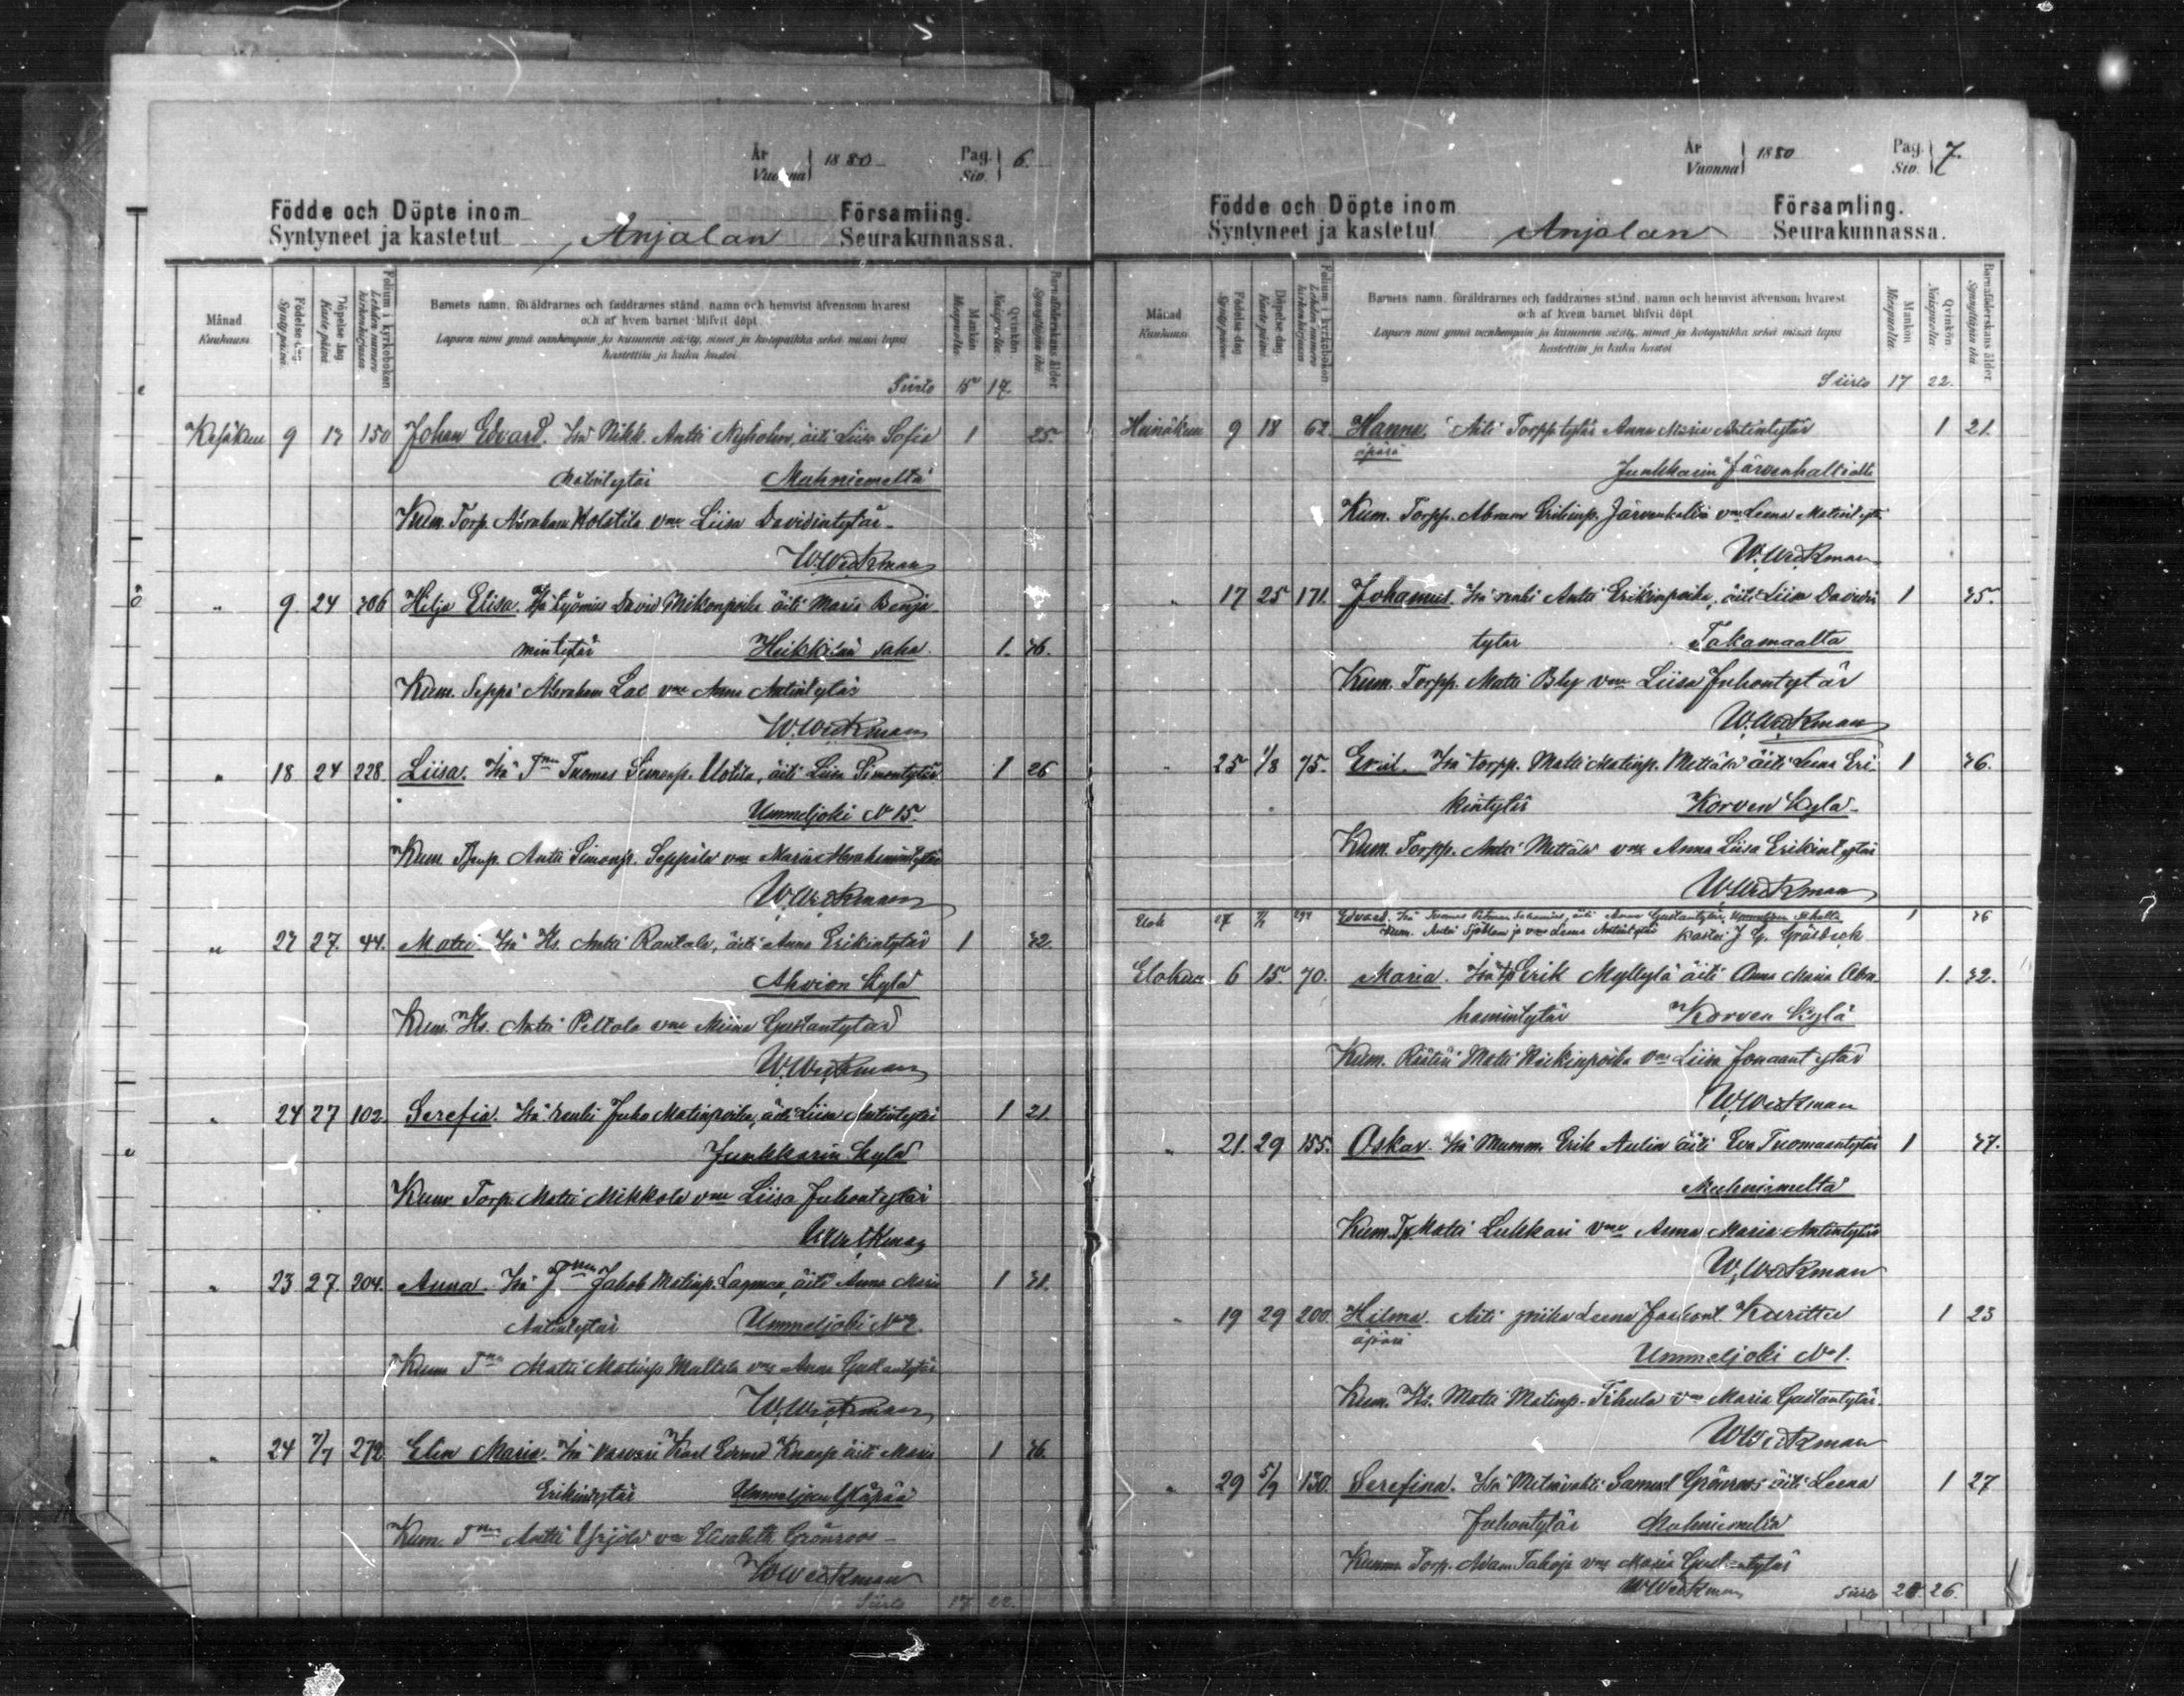 År
Vuonna 1880 Pag. Siv. 6.
Födde och Döpte inom Församling.
Syntyneet ja kastetut Anjalan Seurakunnassa.
Månad
Kuukausi.
Födelse dag
Synty päivä.
Döpelse dag
Kaste päivä.
Folium i kyrkoboken
Lehden numero kirkonkirjassa
Barnets namn, föräldrarnes och faddrarnes stånd, namn och hemvist äfvensom hvarest
och af hvem barnet blifvit döpt.
Lapsen nimi ynnä vanhempain ja kummein sääty, nimet ja kotopaikka sekä missä lapsi
kastettiin ja kuka kastoi.
Mankön
Miespuolta.
Qvinkön
Naispuolta.
Barnaföderskans ålder
Synnyttäjän ikä.
Siirto 15 17.
Kesäkuu 9 17 150 Johan Edvard. Isä Nikk. Antti Nyholm, äiti Liisa Sofia 1 25.
Matintytär Muhniemeltä
Kum. Torp. Abraham Holstila vmo Liisa Davidintytär
W. Weckman
" 9. 24 306 Hilja Elisa. Isä työmies David Mikonpoika äiti Maria Benja
mintytär Heikkilän saha. 1.
Kum. Seppä Abraham vmo Anna Antintytär
W. Weckman
" 18 24 228 Liisa. Isä Tuomas Simonp. Uotila, äiti Liisa Simontytär 1 26
Ummeljoki No 15.
Kum. Antti Simonp. Seppälä vmo Maria Abrahamintytär
W. Weckman
" 27 27. 44. Isä Antti Rantala, äiti Anna Erikintytär 1 32.
Ahvion kylä
Kum. Antti Peltola vmo Miina Gustantytär
W. Weckman
" 24 27 102. Serefia. Isä renki Juho Matinpoika, äiti Liisa Antintytär 1 21
Junkkarin kylä
Kum. Torp. Matti Mikkola vmo Liisa Juhontytär
W. Weckman
" 23 27. 204. Anna. Isä Jakob Matinp. Lagman, äiti Anna Maria 1
Antintytär Ummeljoki
Kum. Matti Matinp. Multala vmo Anna Gustantytär
W. Weckman
" 24 7/7 272 Elin Maria. Isä Karl Edvard äiti Maria 1
Erikintytär Ummeljoen
Kum. Antti Yrjölä vmo Elisabeth Grönroos
W. Weckman
Siirto 17 22.
År
Vuonna 1880 Pag. Siv. 7.
Födde och Döpte inom Församling.
Syntyneet ja kastetut Anjalan Seurakunnassa.
Månad
Kuukausi.
Födelse dag
Synty päivä.
Döpelse dag
Kaste päivä.
Folium i kyrkoboken
Lehden numero kirkonkirjassa
Barnets namn, föräldrarnes och faddrarnes stånd, namn och hemvist äfvensom hvarest
och af hvem barnet blifvit döpt.
Lapsen nimi ynnä vanhempain ja kummein sääty, nimet ja kotopaikka sekä missä lapsi
kastettiin ja kuka kastoi.
Mankön
Miespuolta.
Qvinkön
Naispuolta.
Barnaföderskans ålder
Synnyttäjän ikä.
Siirto 17 22.
Heinäkuu 9 18 62. Hanna. Äiti Torpp. tytär Anna Maria Antintytär 1 21.
äpärä
Junkkarin Järvenkalliolta
Kum. Torpp. Abram Erikinp. Järvenkallio vmo Leena Matintytär
W. Weckman
" 17 25 171. Johannes. Isä renki Antti Erikinpoika, äiti Liisa Davidin 1 35.
tytär Takamaalta
Kum. Torpp. Matti Bly vmo Liisa Juhontytär
W. Weckman
" 25 1/8 75. Isä torpp. Matti Matinp. Mettälä äiti Leena Eri 1 36.
kintytär Korven kylä
Kum. Torpp. Antti Mettälä vmo Anna Liisa Erikintytär
W. Weckman
Elok. 27 Edvard. Isä äiti Anna Gustantytär, 1 36
Kum. Antti Sjöblom ja vmo Leena Antintytär kastoi J. G. Gråsbeck
Elokuu 6 15. 70. Maria. Isä Erik Myllylä äiti Anna Maria Abra 1. 32.
hamintytär Korven kylä
Kum. Räätäli Matti vmo Liisa Joonaantytär
W. Weckman
" 21. 29 155. Oskar. Isä Erik Aulin äiti Eva Tuomaantytär 1 37.
Muhniemeltä
Kum. Tp. Matti Lukkari vmo Anna Maria Antintytär
W. Weckman
" 19 29 200. Hilma. Äiti piika Leena Karittu 1 23
äpärä
Ummeljoki No 1.
Kum. Matti Matinp. Tihula vmo Maria Gustantytär.
W. Weckman
" 29 5/9 130. Serefina. Isä Samuel Grönroos äiti Leena 1 27
Juhontytär Muhniemeltä
Kumm. Torp. Adam vmo Maria Gustantytär
W. Weckman Siirto 26.